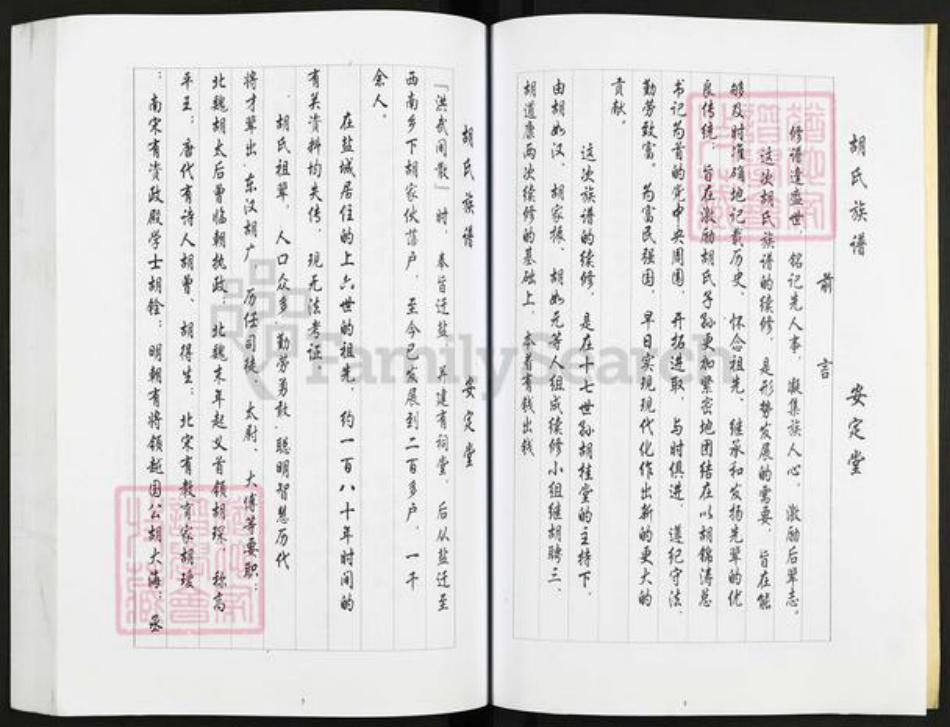 胡氏族谱 安定堂
前言
修谱逢盛世，铭记先人事，凝集族人心，激励后辈志。
这次胡氏族谱的续修，是形势发展的需要，旨在能
够及时准确地记载历史、怀念祖先、继承和发扬先辈的优
良传统；旨在激励胡氏子孙更加紧密地团结在以胡锦涛总
书记为首的党中央周围，开拓进取，与时俱进，遵纪守法，
勤劳致富，为富民强国，早日实现现代化作出新的更大的
贡献。
这次族谱的续修，是在十七世孙胡桂堂的主持下，
由胡如汉、胡家振、胡如元等人组成续修小组继胡聘三、
胡道康两次续修的基础上，本着有钱出钱
胡氏族谱 安定堂
『洪武闲散』时，奉旨迁盐，并建有祠堂，后从盐迁至
西南乡下胡家伙落户，至今已发展到二百多户，一千
余人。
在盐城居住的上六世的祖先，约一百八十年时间的
有关资料均失传，现无法考证
胡氏祖辈，人口众多，勤劳勇敢，聪明智慧历代
将才辈出，东汉胡广 历任司徒、太尉、大傅等要职；
北魏胡太后曾临朝执政；北魏末年起义首领胡琛，称高
平王；唐代有诗人胡曾、胡得生；北宋有教育家胡瑗
；南宋有资政殿学士胡铨；明朝有将领越国公胡大海；丞
FamilySearch